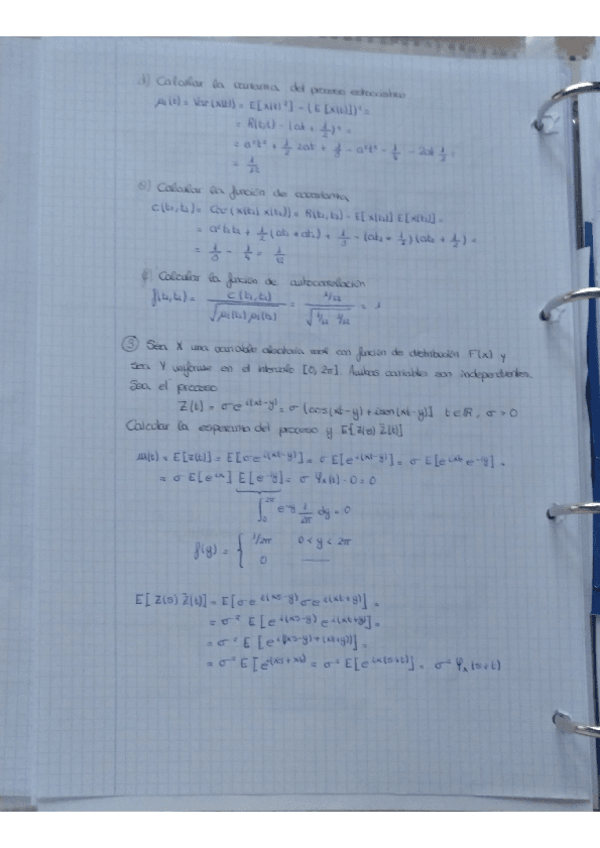 d) Calcular la varianza del proceso estocástico
μ₂(t) = Var(X(t)) = E[X(t)²] - (E[X(t)])² =
= R(t,t) - (at + 1/2)² =
= a²t² + 1/2 2at + 1/3 - a²t² - 1/4 - 2at 1/2 =
= 1/12
e) Calcular la función de covarianza
C(t₁,t₂) = Cov(X(t₁) X(t₂)) = R(t₁,t₂) - E[X(t₁)] E[X(t₂)] =
= a²t₁t₂ + 1/2 (at₁ + at₂) + 1/3 - (at₁ + 1/2)(at₂ + 1/2) =
= 1/3 - 1/4 = 1/12
f) Calcular la función de autocorrelación
ρ(t₁,t₂) = C(t₁,t₂) / √(μ₂(t₁) μ₂(t₂)) = 1/12 / √(1/12 1/12) = 1
③ Sea X una variable aleatoria con función de distribución F(x) y
sea Y uniforme en el intervalo [0, 2π]. Ambas variables son independientes.
Sea el proceso
Z(t) = σe^i(xt-y) = σ (cos(xt-y) + i sen(xt-y)] t∈ℝ, σ > 0
Calcular la esperanza del proceso y E[Z(s) Z̄(t)]
m(t) = E[Z(t)] = E[σe^i(xt-y)] = σ E[e^i(xt-y)] = σ E[e^ixt e^-iy] =
= σ E[e^ix] E[e^-iy] = σ Ψₓ(t) · 0 = 0
∫₀^2π e^-y 1/2π dy = 0
f(y) = { 1/2π 0 < y < 2π
0 ——
E[Z(s) Z̄(t)] = E[σe^i(xs-y) σe^i(xt+y)] =
= σ² E[e^i(xs-y) e^i(xt+y)] =
= σ² E[e^i((xs-y)+(xt+y))] =
= σ² E[e^i(xs+xt)] = σ² E[e^ix(s+t)] = σ² Ψₓ(s+t)